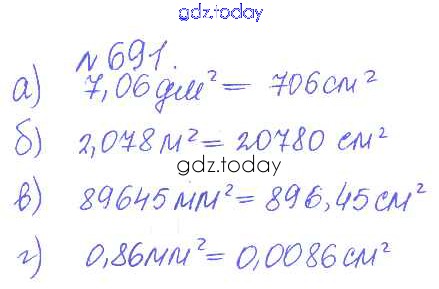 gdz.today
№ 691.
а) 7,06 дм² = 706 см²
б) 2,078 м² = 20780 см²
gdz.today
в) 89645 мм² = 896,45 см²
г) 0,86 мм² = 0,0086 см²